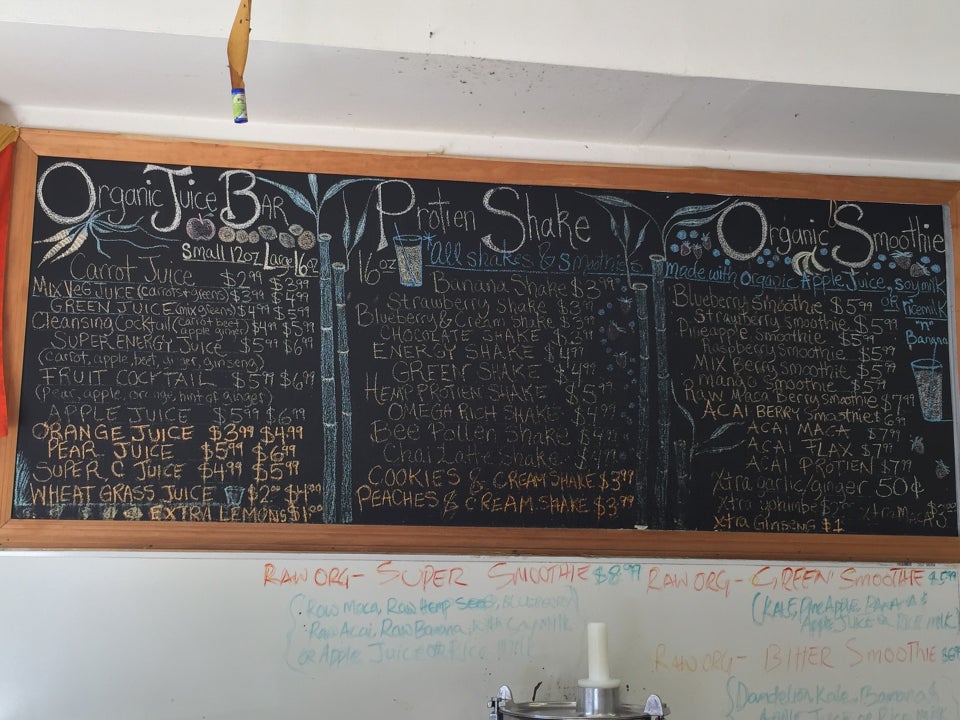 Organic Juice BAR
Small 12oz Large 16oz
Carrot Juice $2.99 $3.99
Mix Veg Juice (carrots + greens) $3.99 $4.99
GREEN JUICE (mix greens) $4.99 $5.99
Cleansing Cocktail (carrot beet, apple ginger) $4.99 $5.99
SUPER ENERGY JUICE $5.99 $6.99
(carrot, apple, beet, ginger, ginseng)
FRUIT COCKTAIL $5.99 $6.99
(pear, apple, orange, hint of ginger)
APPLE JUICE $5.99 $6.99
ORANGE JUICE $3.99 $4.99
PEAR JUICE $5.99 $6.99
SUPER C JUICE $4.99 $5.99
WHEAT GRASS JUICE $2.00 $4.00
EXTRA LEMONS $1.00
Protien Shake
16oz All shakes & smoothies
Banana Shake $3.99
Strawberry Shake $3.99
Blueberry & Cream Shake $3.99
CHOCOLATE SHAKE
ENERGY SHAKE $4.99
GREEN SHAKE $4.99
HEMP PROTIEN SHAKE $5.99
OMEGA RICH SHAKE $4.99
Bee Pollen Shake $4.99
Chai Latte Shake
COOKIES & CREAM SHAKE $3.99
PEACHES & CREAM SHAKE $3.99
Organic Smoothie
made with organic Apple Juice, soymilk
OR ricemilk
"n"
Banana
Blueberry Smoothie $5.99
Strawberry smoothie $5.99
Pineapple Smoothie $5.99
Raspberry Smoothie $5.99
MIX Berry Smoothie $5.99
mango Smoothie $5.99
Raw Maca Berry smoothie $7.99
ACAI BERRY Smoothie $6.99
ACAI MACA $7.99
ACAI FLAX $7.99
ACAI PROTIEN $7.99
Xtra garlic/ginger 50¢
Xtra yohimbe Xtra Maca
Xtra GINSENG $1
RAW ORG- SUPER SMOOTHIE $8.99
(Raw Maca, Raw Hemp Seeds, BLUEBERRY
Raw Acai, Raw Banana, with Soy Milk
or Apple Juice or Rice Milk
RAW ORG- GREEN SMOOTHIE $5.99
(KALE, PineApple, BANANAS
Apple Juice or Rice milk)
RAW ORG- BITTER SMOOTHIE
(Dandelion Kale, Banana &
Apple Juice or Rice Milk